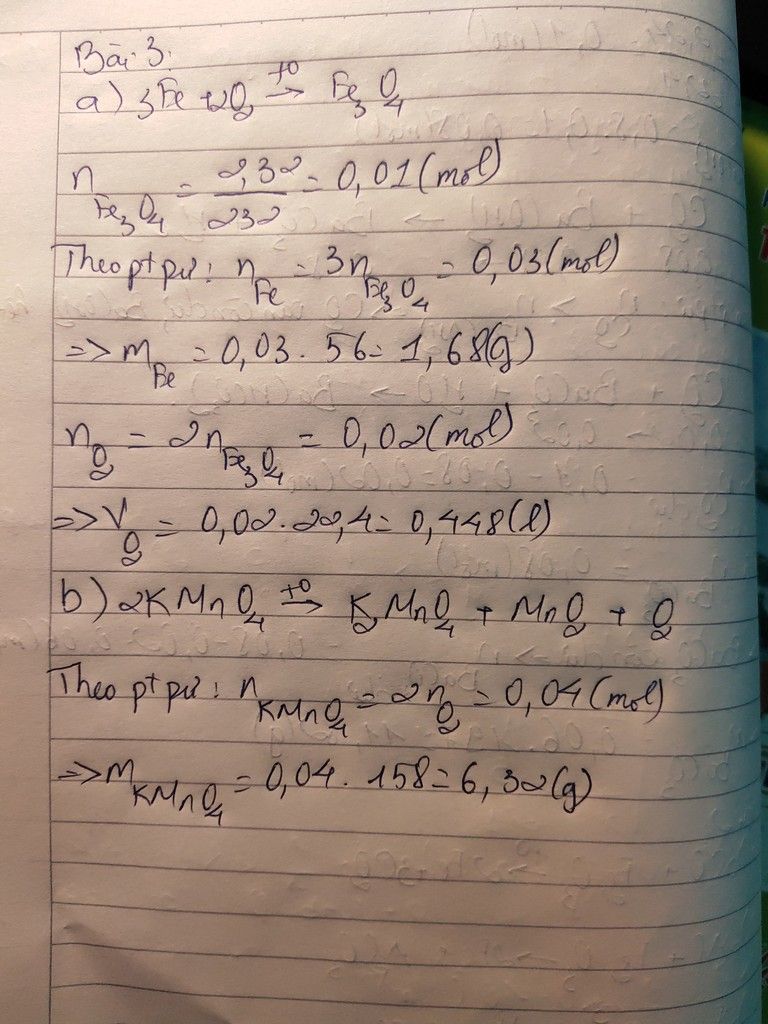 Bài 3:
a) 3Fe + 2O₂ →(t⁰) Fe₃O₄
n Fe₃O₄ = 2,32/232 = 0,01 (mol)
Theo pt pư: n Fe = 3n Fe₃O₄ = 0,03 (mol)
=> m Fe = 0,03 . 56 = 1,68 (g)
n O₂ = 2n Fe₃O₄ = 0,02 (mol)
=> V O₂ = 0,02 . 22,4 = 0,448 (l)
b) 2KMnO₄ →(t⁰) K₂MnO₄ + MnO₂ + O₂
Theo pt pư: n KMnO₄ = 2n O₂ = 0,04 (mol)
=> m KMnO₄ = 0,04 . 158 = 6,32 (g)